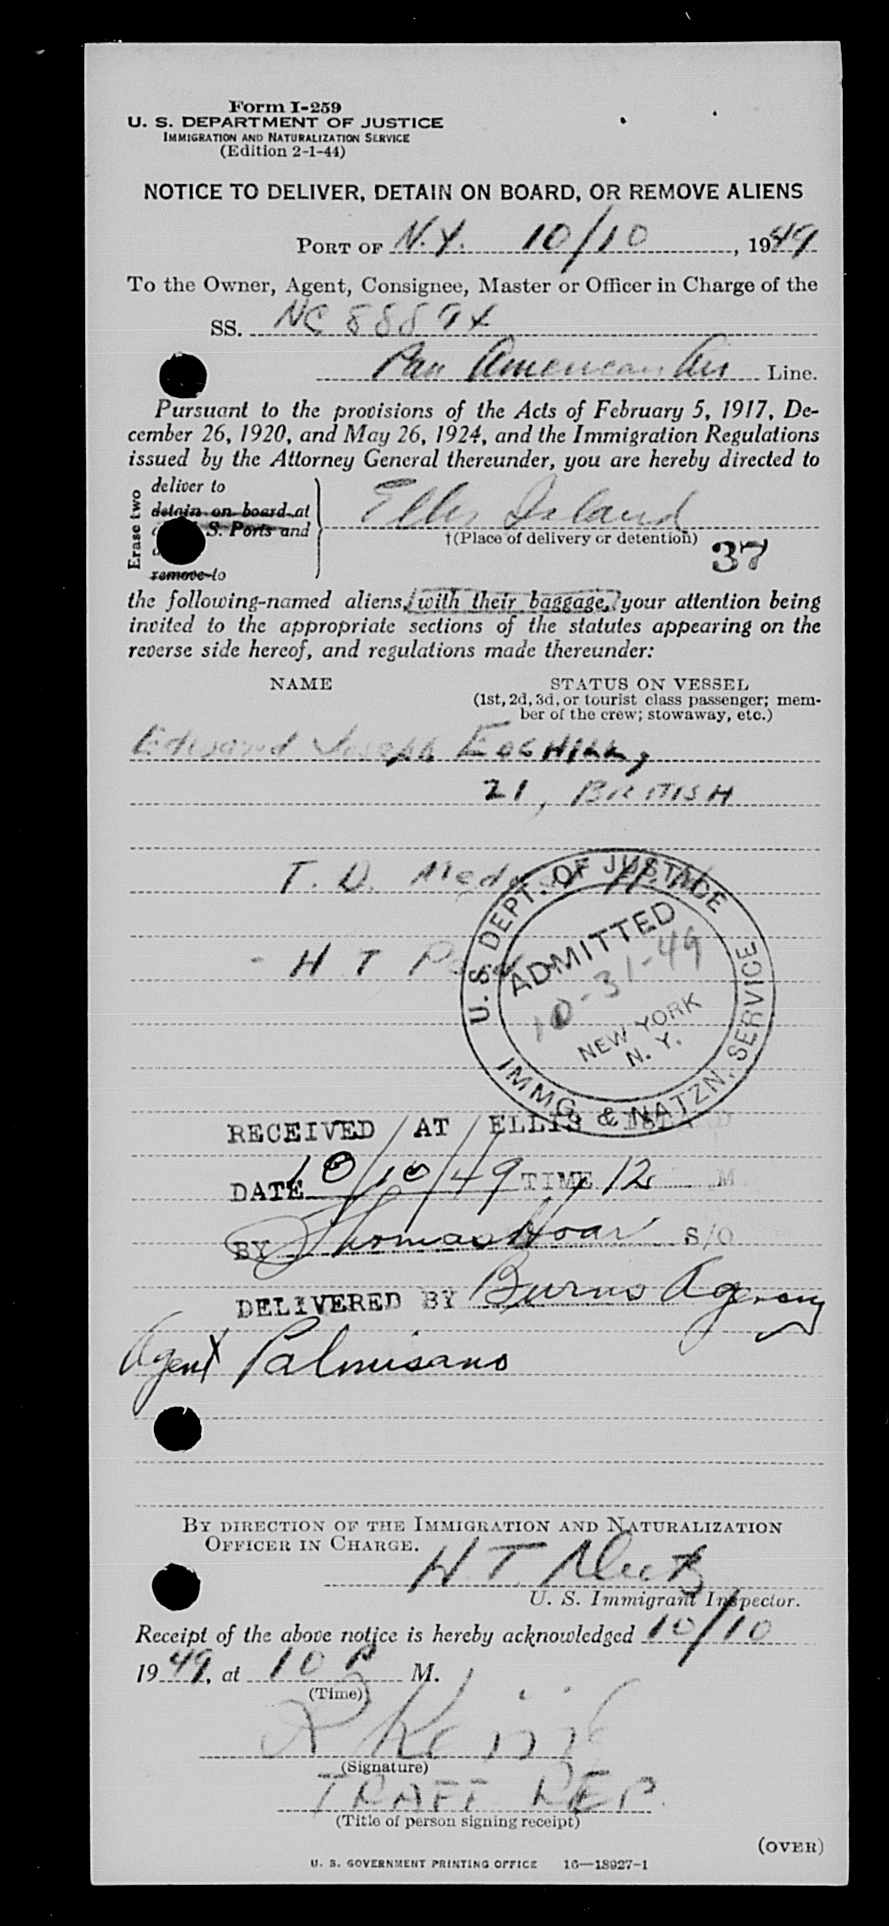 Form I-259
U. S. DEPARTMENT OF JUSTICE
IMMIGRATION AND NATURALIZATION SERVICE
(Edition 2-1-44)
NOTICE TO DELIVER, DETAIN ON BOARD, OR REMOVE ALIENS
PORT OF N.Y. 10/10, 1949
To the Owner, Agent, Consignee, Master or Officer in Charge of the
SS. NC 88894
Pan American Air Line.
Pursuant to the provisions of the Acts of February 5, 1917, De-
cember 26, 1920, and May 26, 1924, and the Immigration Regulations
issued by the Attorney General thereunder, you are hereby directed to
Erase two
deliver to
detain on board at
S. Ports and
remove to
Ellis Island
†(Place of delivery or detention)
37
the following-named aliens, with their baggage, your attention being
invited to the appropriate sections of the statutes appearing on the
reverse side hereof, and regulations made thereunder:
NAME STATUS ON VESSEL
(1st, 2d, 3d, or tourist class passenger; mem-
ber of the crew; stowaway, etc.)
Edward Joseph
21, BRITISH
T. D.
- H T
U. S. DEPT. OF JUSTICE
ADMITTED
10-31-49
NEW YORK
N. Y.
IMMG. & NATZN. SERVICE
RECEIVED AT ELLIS ISLAND
DATE 10/10/49 TIME 12 M
BY Thomas Hoar S/O
DELIVERED BY Burns Agency
Agent Palmisano
BY DIRECTION OF THE IMMIGRATION AND NATURALIZATION
OFFICER IN CHARGE.
H. T.
U. S. Immigrant Inspector.
Receipt of the above notice is hereby acknowledged 10/10
1949, at 10 P M.
(Time)
(Signature)
TRAFF REP.
(Title of person signing receipt)
(OVER)
U. S. GOVERNMENT PRINTING OFFICE 16—18927-1